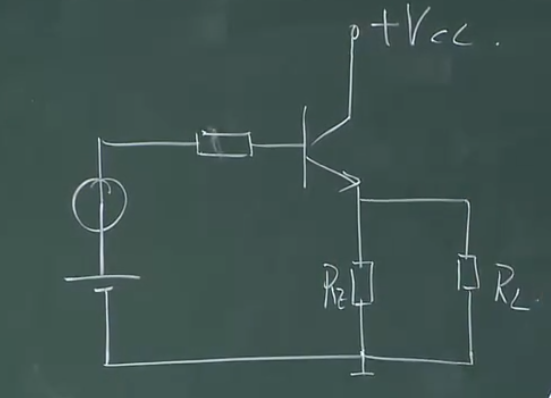 +Vcc.
RE
RL.